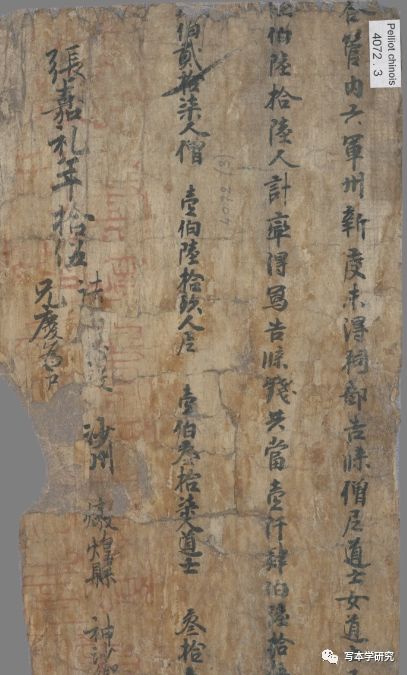 Pelliot chinois
4072 . 3
合管內六軍州新度未得祠部告牒僧尼道士女道
伯陸拾陸人計率得寫告牒錢共當壹仟肆伯陸拾
伯貳拾柒人僧 壹伯陸拾玖人尼 壹伯叁拾柒人道士 叁拾
張嘉礼年拾伍 法 沙州 燉煌縣 神沙
兄慶為户
写本学研究